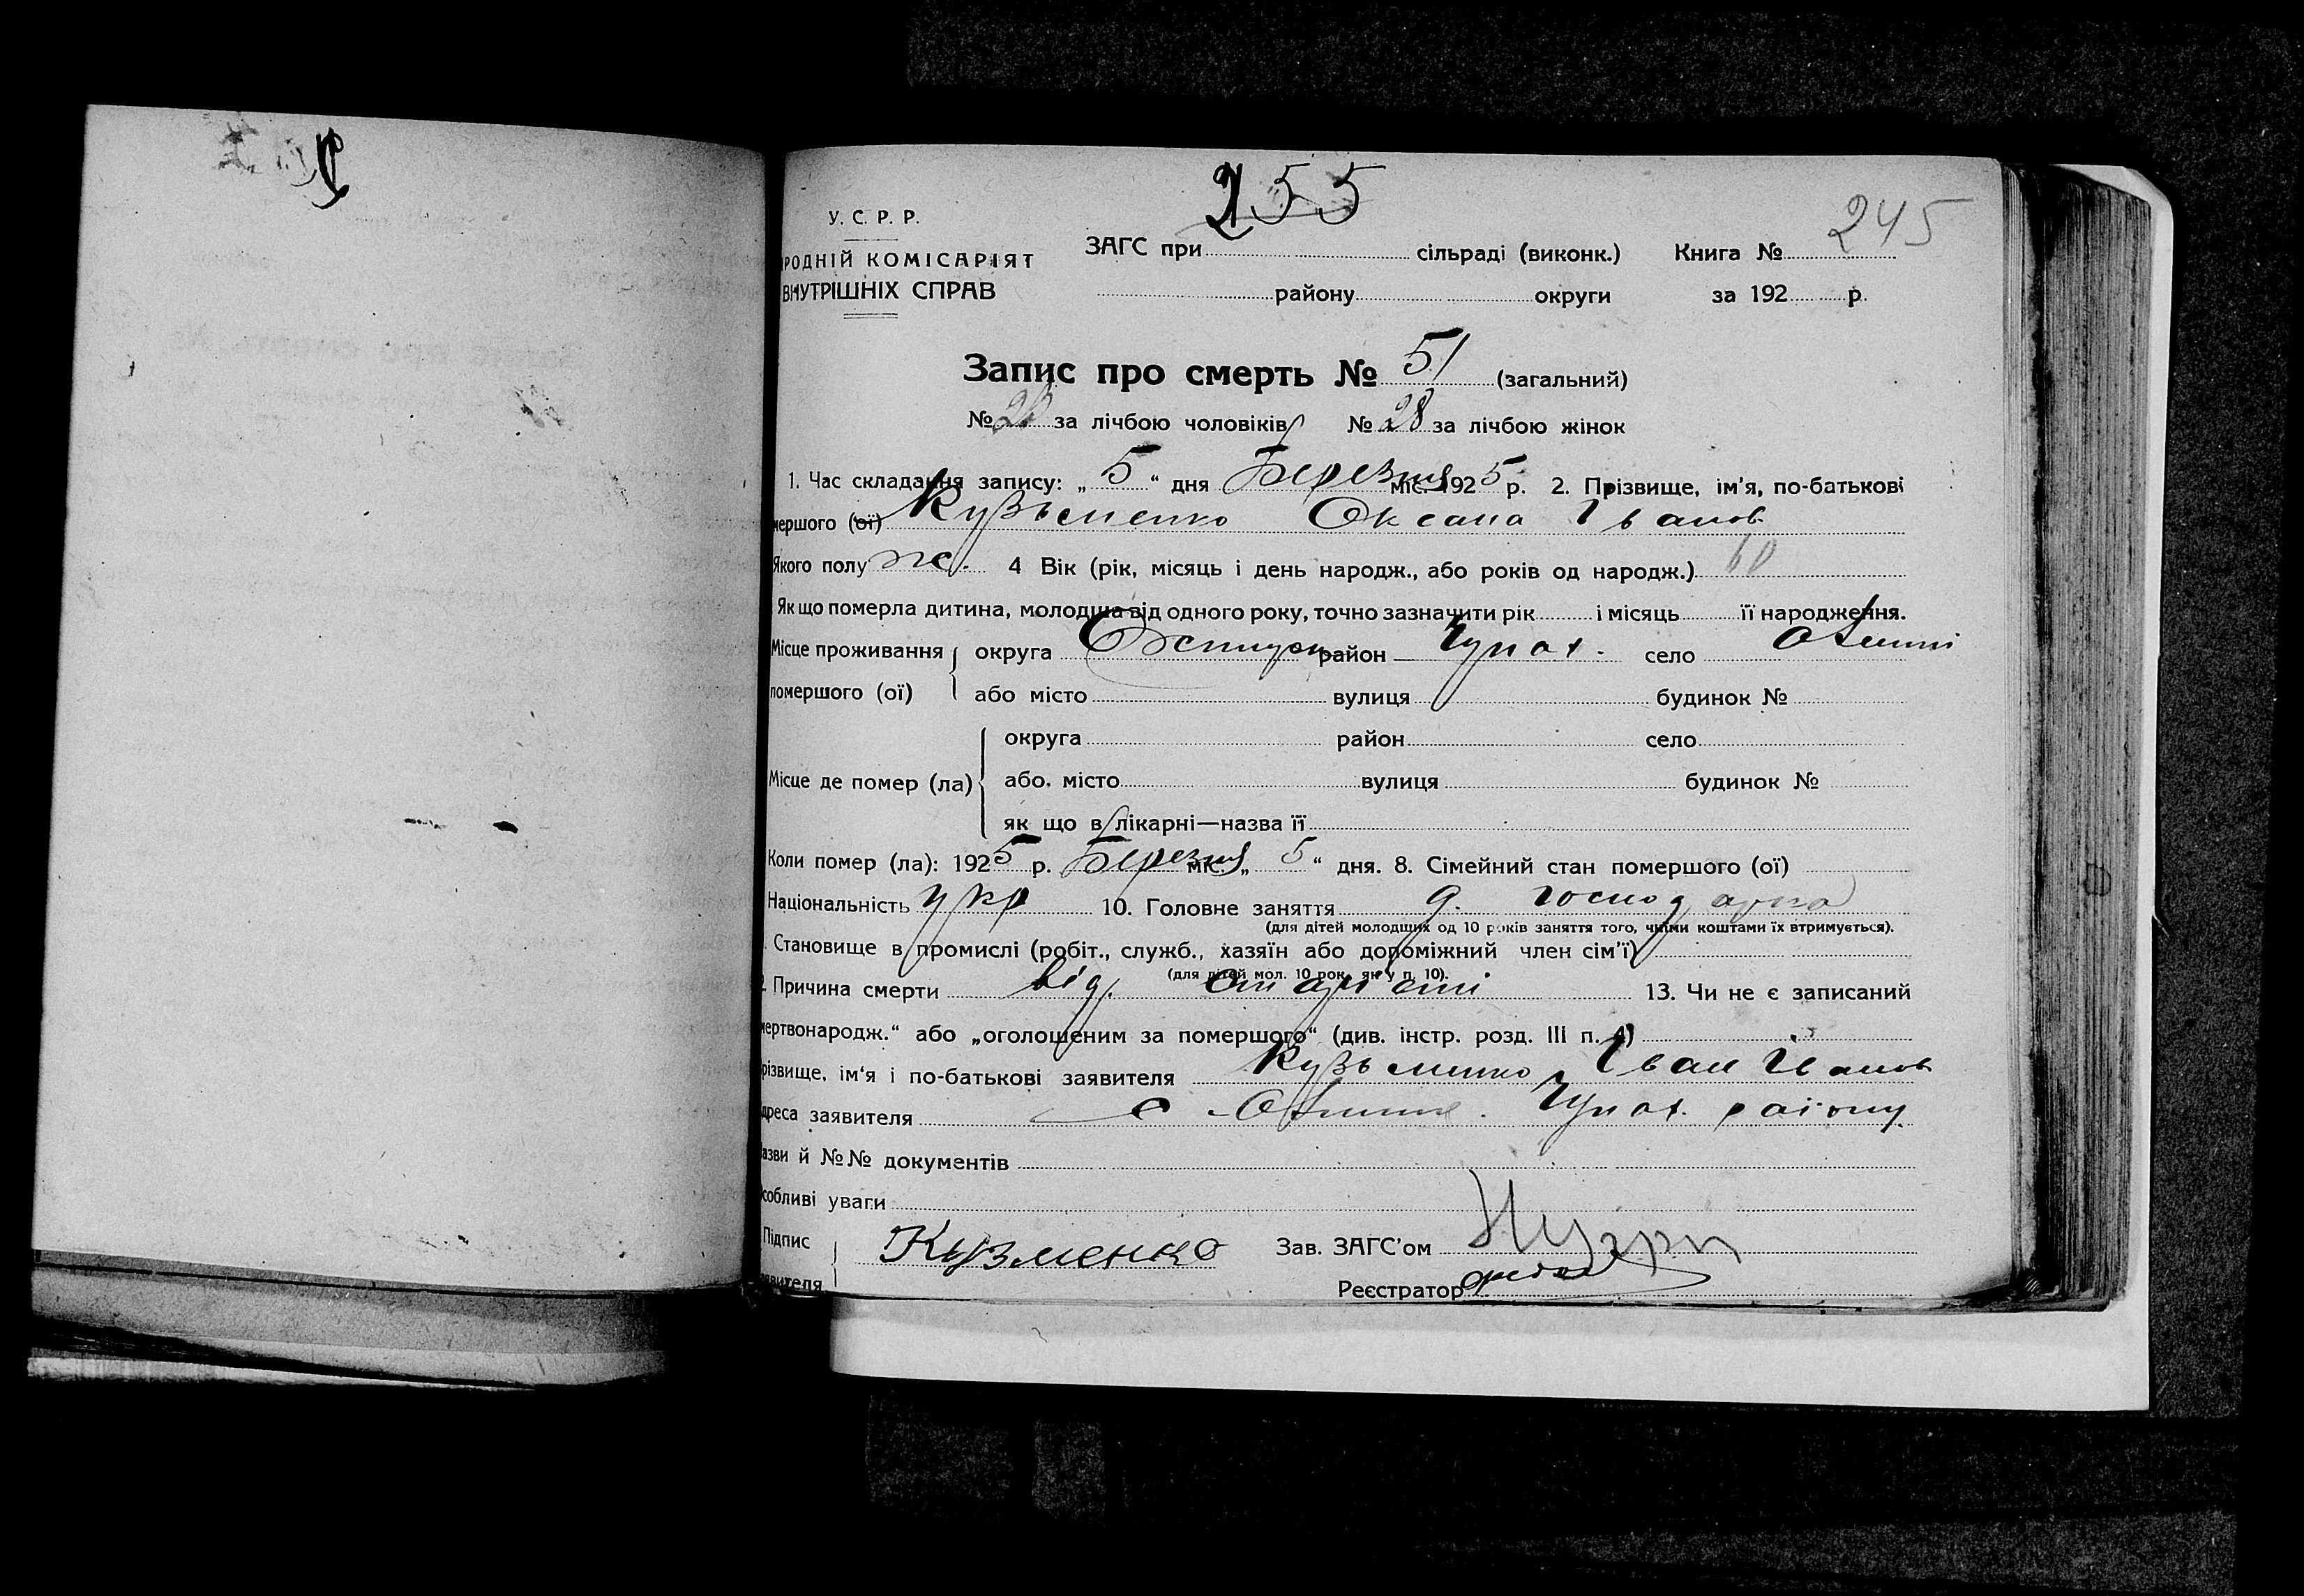 255
У. С. Р. Р.
РОДНІЙ КОМІСАРІЯТ
ВНУТРІШНІХ СПРАВ
ЗАГС при сільраді (виконк.) Книга № 245
району округи за 192 р.
Запис про смерть № 51 (загальний)
№ за лічбою чоловіків № 28 за лічбою жінок
1. Час складання запису: „ 5 “ дня Березня міс. 1925 р. 2. Прізвище, ім'я, по-батькові
мершого (ої) Кузьменко Оксана Іванов
Якого полу ж. 4 Вік (рік, місяць і день народж., або років од народж.) 60
Як що померла дитина, молодша від одного року, точно зазначити рік і місяць її народження.
Місце проживання округа район Чупах. село
помершого (ої) або місто вулиця будинок №
округа район село
Місце де помер (ла) або. місто вулиця будинок №
як що в лікарні—назва її
Коли помер (ла): 1925 р. Березня міс. „ 5 “ дня. 8. Сімейний стан помершого (ої)
Національність укр 10. Головне заняття д. господарка
(для дітей молодших од 10 років заняття того, чиїми коштами їх втримується).
Становище в промислі (робіт., служб., хазяїн або допоміжний член сім'ї)
(для дітей мол. 10 рок. як у п. 10).
Причина смерти від старості 13. Чи не є записаний
мертвонародж.“ або „оголошеним за помершого“ (див. інстр. розд. III п. 4)
різвище, ім'я і по-батькові заявителя Кузьменко Іван Іванов
дреса заявителя с Чупах. району
азви й №№ документів
собливі уваги
Підпис Кузменко Зав. ЗАГС'ом
явителя Реєстратор